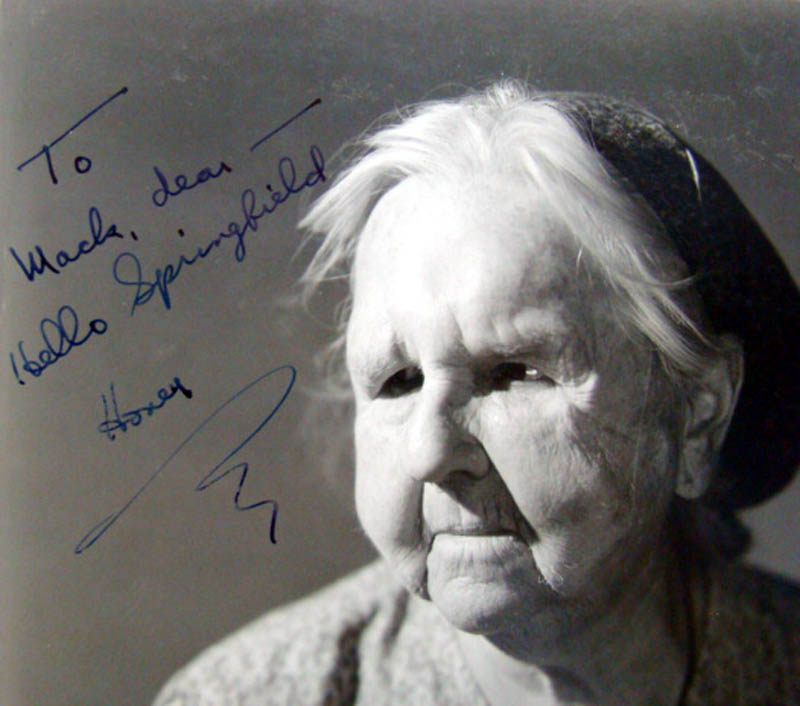 To
Mack, dear —
Hello Springfield
Honey